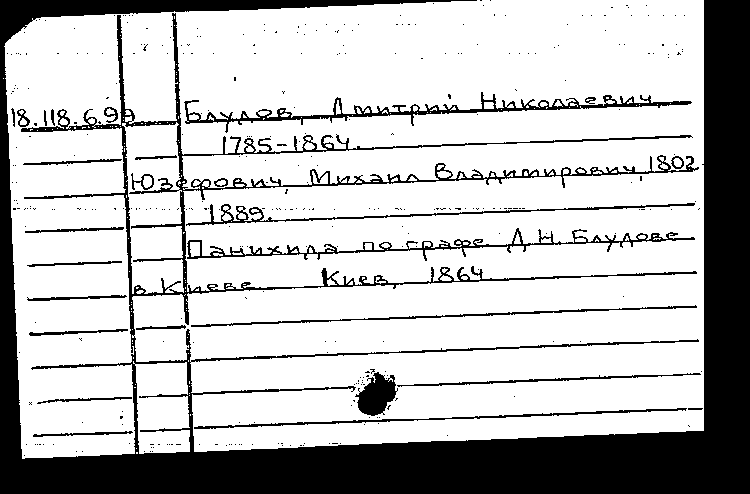 18.118.6.99 Блудов, Дмитрий Николаевич,
1785-1864.
Юзефович, Михаил Владимирович, 1802
1889.
Панихида по графе Д.Н. Блудове
в Киеве Киев, 1864